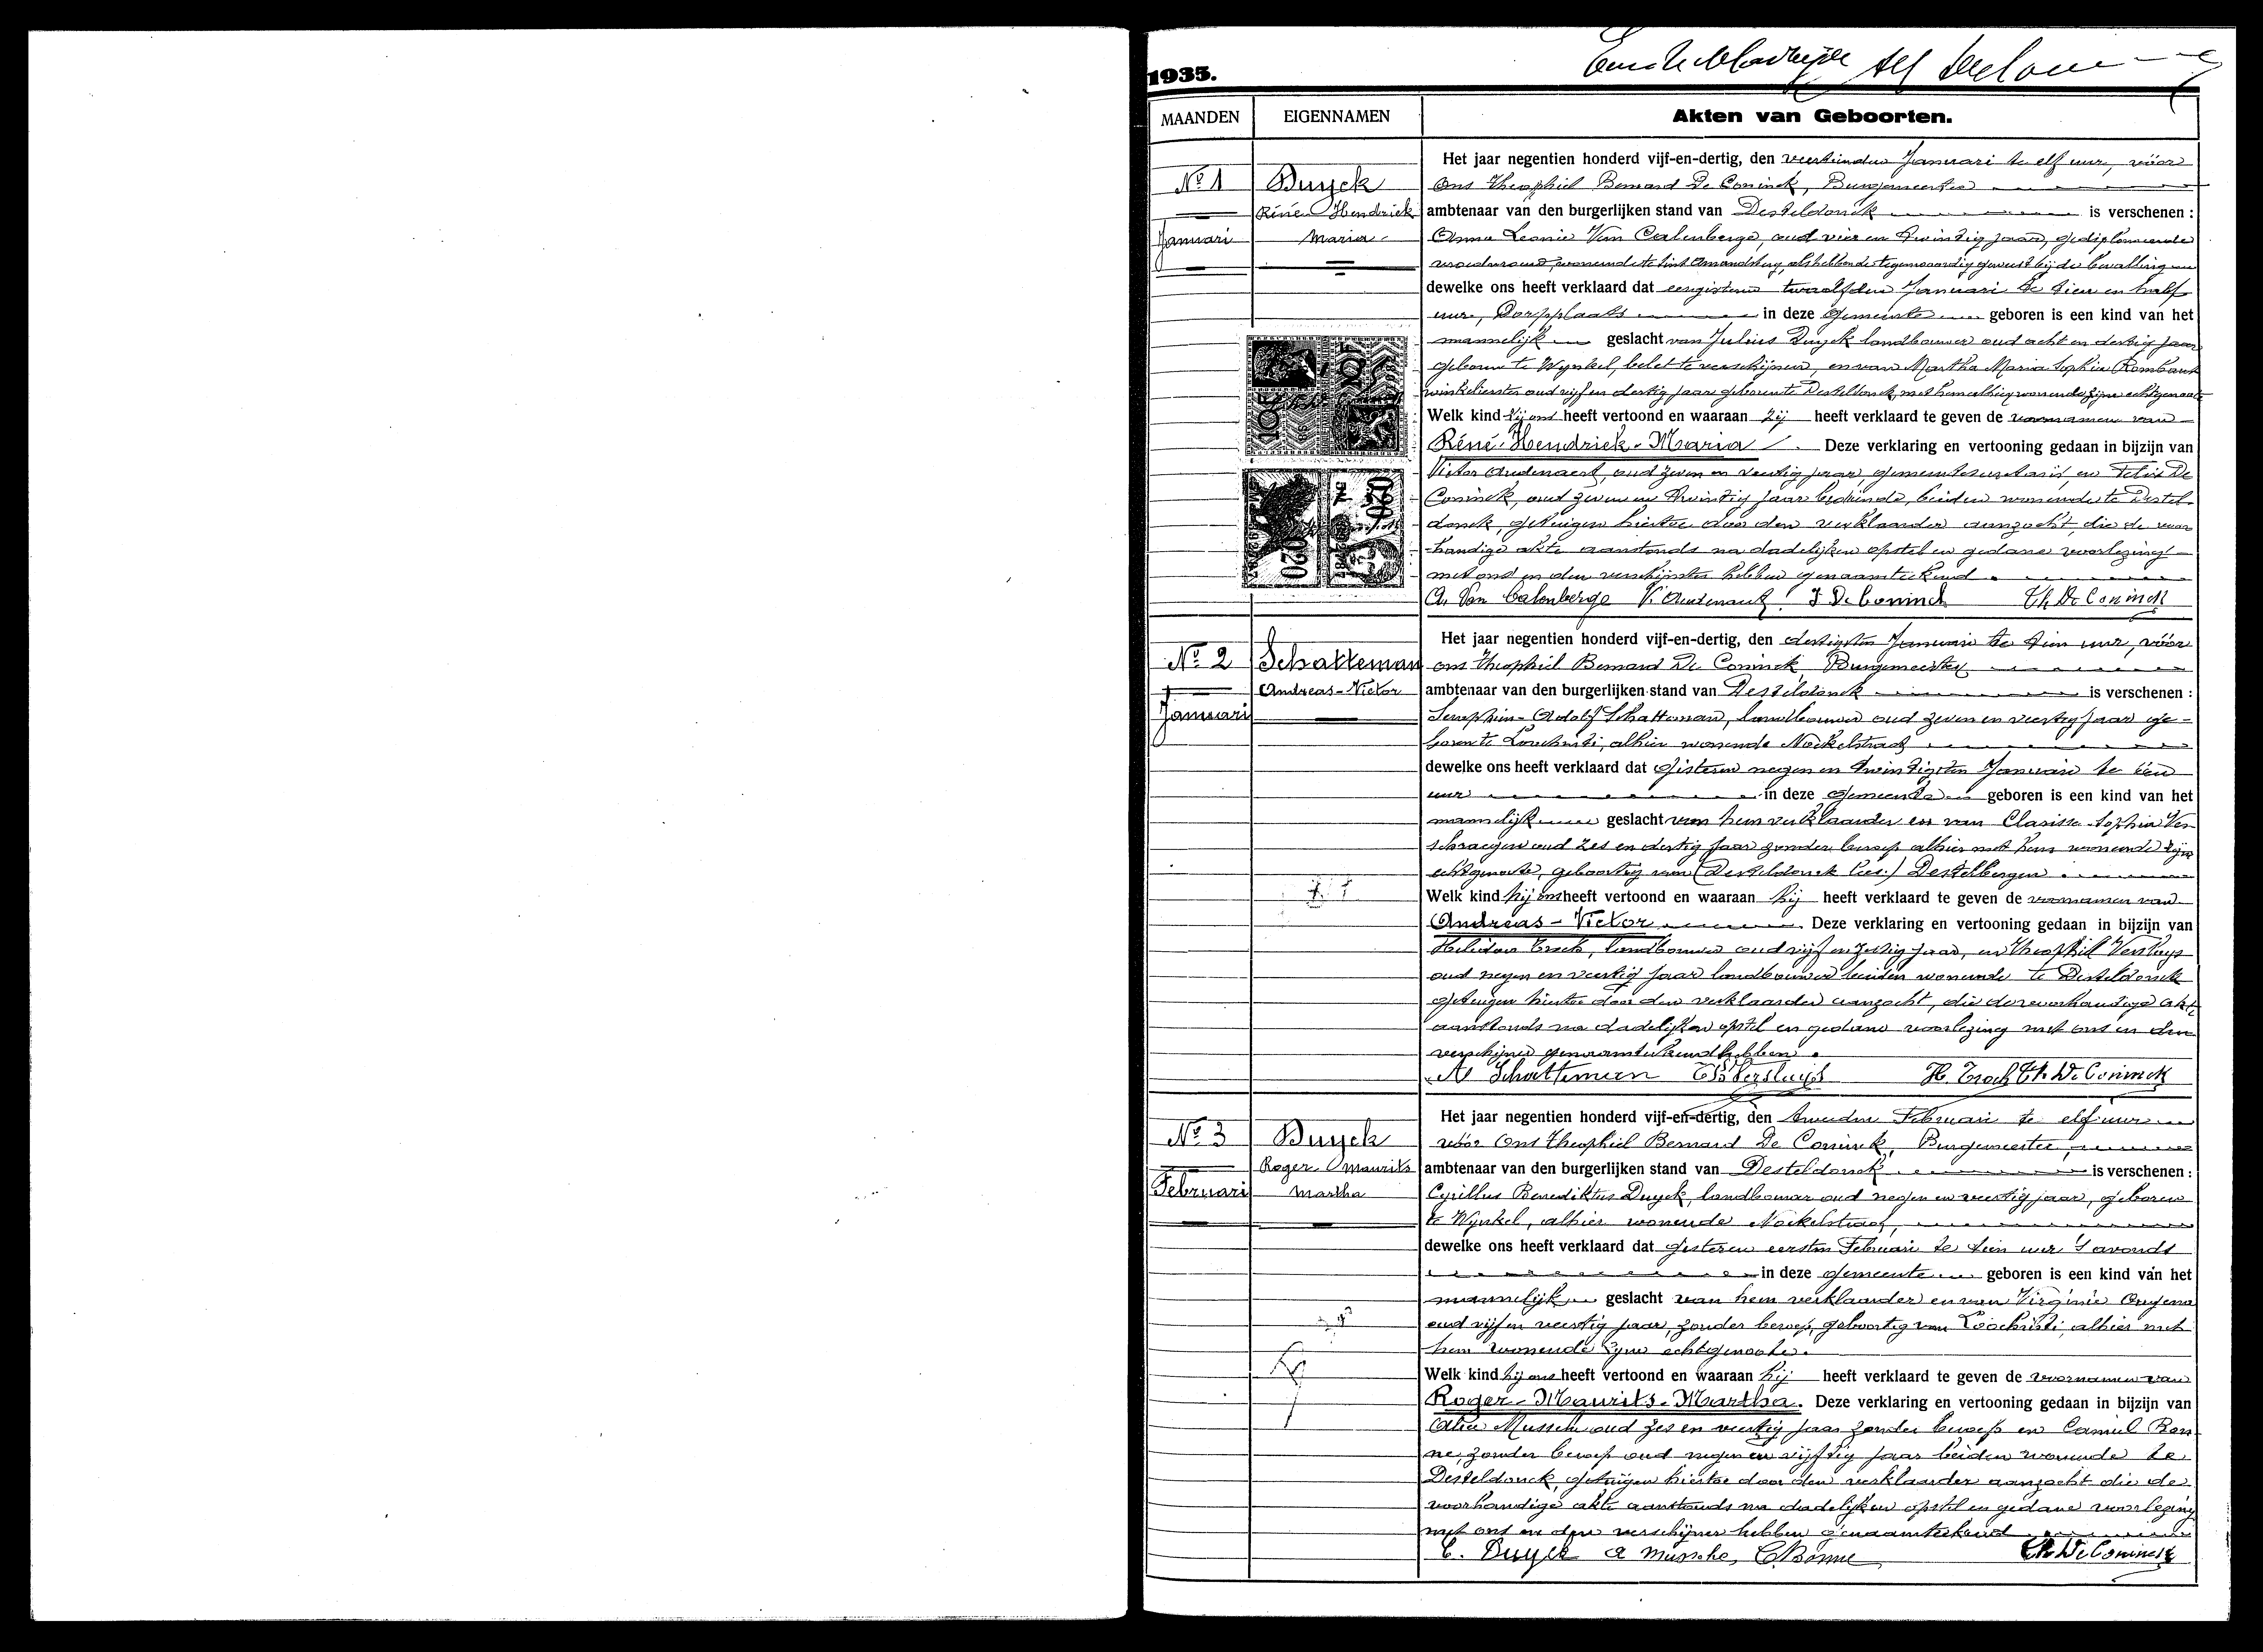 1935.
Eerste bladzijde
MAANDEN EIGENNAMEN Akten van Geboorten.
Nº 1
Januari
Duyck
Réné Hendrick
Maria
Het jaar negentien honderd vijf-en-dertig, den veertienden Januari te elf ure, vóór
Ons Theophiel Bernard De Coninck, Burgemeester
ambtenaar van den burgerlijken stand van Desteldonck is verschenen :
Anna Leonie Van Calenberge, oud vier en twintig jaar, gediplomeerde
vroedvrouw, wonende te Sint Amandsberg, als hebbende tegenwoordig geweest bij de bevalling
dewelke ons heeft verklaard dat eergisteren twaalfden Januari te tien en half
ure, Dorpplaats in deze Gemeente geboren is een kind van het
mannelijk geslacht van Julius Duyck landbouwer oud acht en dertig jaar
geboren te Wynkel, belet te verschijnen, en van Martha Maria Sophia Rombaut
winkelierster oud vijf en dertig jaar geboren te Desteldonck, met hem alhier wonende zijne echtgenoote
Welk kind zij ons heeft vertoond en waaraan zij heeft verklaard te geven de voornamen van
Réné-Hendrick-Maria Deze verklaring en vertooning gedaan in bijzijn van
Victor Audenaert, oud zeven en veertig jaar, gemeentesecretaris, en Felix De
Coninck, oud zeven en twintig jaar bediende, beiden wonende te Destel-
donck, getuigen hiertoe door den verklaarder aanzocht, die de voor-
handige akte aanstonds na dadelijken opstel en gedane voorlezing
met ons en den verschijnster hebben genaamteekend.
A. Van Calenberge V. Audenaert F De Coninck Th De Coninck
Nº 2
Januari
Schatteman
Andreas-Victor
Het jaar negentien honderd vijf-en-dertig, den dertigsten Januari te tien ure, vóór
ons Theophiel Bernard De Coninck, Burgemeester
ambtenaar van den burgerlijken stand van Desteldonck is verschenen :
Seraphin-Adolf Schatteman, landbouwer oud zeven en veertig jaar ge-
boren te Loochristi, alhier wonende Nockelstraat
dewelke ons heeft verklaard dat gisteren negen en twintigsten Januari te één
ure in deze Gemeente geboren is een kind van het
mannelijk geslacht van hem verklaarder en van Clarisse Sophia Ver-
schraegen oud zes en dertig jaar zonder beroep alhier met hem wonende zijne
echtgenoote, geboortig van (Desteldonck lies:) Destelbergen
Welk kind hij ons heeft vertoond en waaraan hij heeft verklaard te geven de voornamen van
Andreas-Victor Deze verklaring en vertooning gedaan in bijzijn van
Heliodoor Troch, landbouwer oud vijf en zestig jaar, en Theophiel Versluys
oud negen en veertig jaar landbouwer beiden wonende te Desteldonck
getuigen hiertoe door den verklaarder aanzocht, die de voorhandige akte
aanstonds na dadelijken opstel en gedane voorlezing met ons en den
verschijner genaamteekend hebben.
A Schatteman Th Versluys H. Troch Th. De Coninck
Nº 3
Februari
Duyck
Roger Maurits
Martha
Het jaar negentien honderd vijf-en-dertig, den tweeden Februari te elf ure
vóór Ons Theophiel Bernard De Coninck, Burgemeester,
ambtenaar van den burgerlijken stand van Desteldonck is verschenen :
Cyrillus Benediktus Duyck, landbouwer oud negen en veertig jaar, geboren
te Wynkel, alhier wonende Nockelstraat,
dewelke ons heeft verklaard dat gisteren eersten Februari te tien ure 's avonds
in deze gemeente geboren is een kind van het
mannelijk geslacht van hem verklaarder en van Virginie
oud vijf en veertig jaar, zonder beroep, geboortig van Loochristi, alhier met
hem wonende zijne echtgenoote.
Welk kind hij ons heeft vertoond en waaraan hij heeft verklaard te geven de voornamen van
Roger-Maurits-Martha. Deze verklaring en vertooning gedaan in bijzijn van
Mussche oud zes en veertig jaar zonder beroep en Camiel Bon-
ne, zonder beroep oud negen en vijftig jaar beiden wonende te
Desteldonck, getuigen hiertoe door den verklaarder aanzocht die de
voorhandige akte aanstonds na dadelijken opstel en gedane voorlezing
met ons en den verschijner hebben genaamteekend
C. Duyck A Mussche, C Bonne Th De Coninck